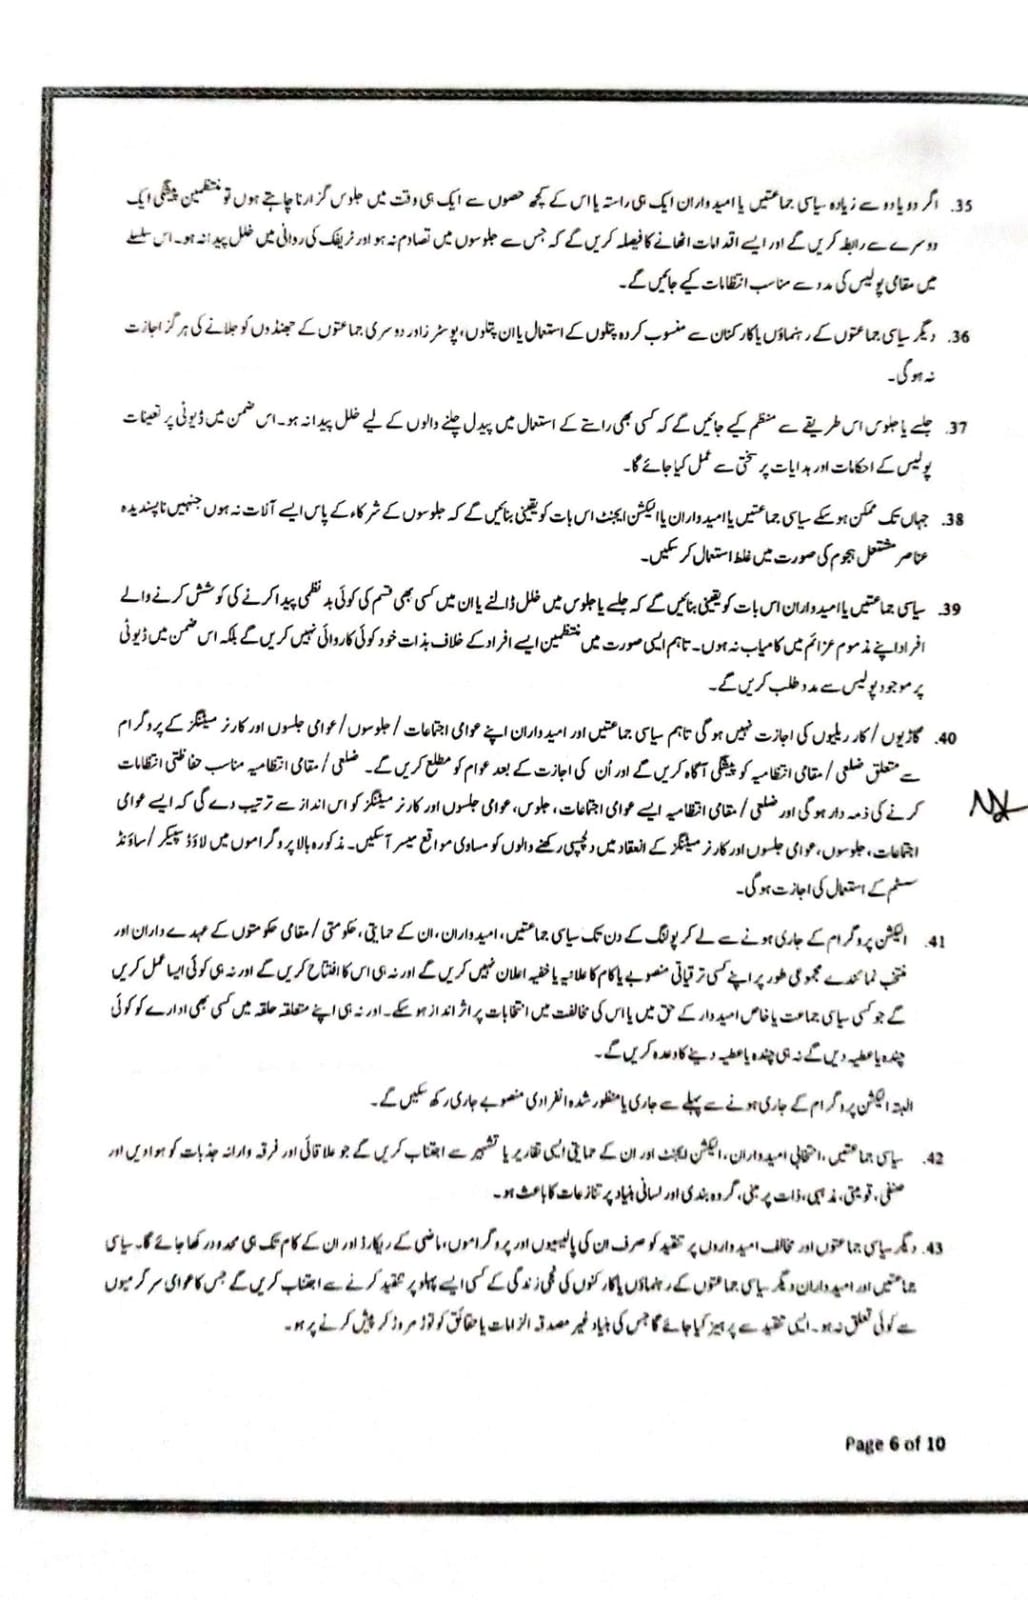 35. اگر دو یا دو سے زیادہ سیاسی جماعتیں یا امیدواران ایک ہی راستہ یا اس کے کچھ حصوں سے ایک ہی وقت میں جلوس گزارنا چاہتے ہوں تو منتظمین پیشگی ایک
دوسرے سے رابطہ کریں گے اور ایسے اقدامات اٹھانے کا فیصلہ کریں گے کہ جس سے جلوسوں میں تصادم نہ ہو اور ٹریفک کی روانی میں خلل پیدا نہ ہو۔ اس سلسلے
میں مقامی پولیس کی مدد سے مناسب انتظامات کیے جائیں گے۔
36. دیگر سیاسی جماعتوں کے رہنماؤں یا کارکنان سے منسوب کردہ پتلوں کے استعمال یا ان پتلوں، پوسٹرز اور دوسری جماعتوں کے جھنڈوں کو جلانے کی ہرگز اجازت
نہ ہوگی۔
37. جلسے یا جلوس اس طریقے سے منظم کیے جائیں گے کہ کسی بھی راستے کے استعمال میں پیدل چلنے والوں کے لیے خلل پیدا نہ ہو۔ اس ضمن میں ڈیوٹی پر تعینات
پولیس کے احکامات اور ہدایات پر سختی سے عمل کیا جائے گا۔
38. جہاں تک ممکن ہو سکے سیاسی جماعتیں یا امیدواران یا الیکشن ایجنٹ اس بات کو یقینی بنائیں گے کہ جلوسوں کے شرکاء کے پاس ایسے آلات نہ ہوں جنہیں ناپسندیدہ
عناصر مشتعل ہجوم کی صورت میں غلط استعمال کر سکیں۔
39. سیاسی جماعتیں یا امیدواران اس بات کو یقینی بنائیں گے کہ جلسے یا جلوس میں خلل ڈالنے یا ان میں کسی بھی قسم کی کوئی بد نظمی پیدا کرنے کی کوشش کرنے والے
افراد اپنے مذموم عزائم میں کامیاب نہ ہوں۔ تاہم ایسی صورت میں منتظمین ایسے افراد کے خلاف بذات خود کوئی کاروائی نہیں کریں گے بلکہ اس ضمن میں ڈیوٹی
پر موجود پولیس سے مدد طلب کریں گے۔
40. گاڑیوں / کار ریلیوں کی اجازت نہیں ہوگی تاہم سیاسی جماعتیں اور امیدواران اپنے عوامی اجتماعات / جلوسوں / عوامی جلسوں اور کارنر میٹنگز کے پروگرام
سے متعلق ضلعی / مقامی انتظامیہ کو پیشگی آگاہ کریں گے اور اُن کی اجازت کے بعد عوام کو مطلع کریں گے۔ ضلعی / مقامی انتظامیہ مناسب حفاظتی انتظامات
کرنے کی ذمہ دار ہوگی اور ضلعی / مقامی انتظامیہ ایسے عوامی اجتماعات، جلوس، عوامی جلسوں اور کارنر میٹنگز کو اس انداز سے ترتیب دے گی کہ ایسے عوامی
اجتماعات، جلوسوں، عوامی جلسوں اور کارنر میٹنگز کے انعقاد میں دلچسپی رکھنے والوں کو مساوی مواقع میسر آسکیں۔ مذکورہ بالا پروگراموں میں لاؤڈ سپیکر / ساؤنڈ
سسٹم کے استعمال کی اجازت ہوگی۔
41. الیکشن پروگرام کے جاری ہونے سے لے کر پولنگ کے دن تک سیاسی جماعتیں، امیدواران، ان کے حمایتی، حکومتی / مقامی حکومتوں کے عہدے داران اور
منتخب نمائندے مجموعی طور پر اپنے کسی ترقیاتی منصوبے یا کام کا علانیہ یا خفیہ اعلان نہیں کریں گے اور نہ ہی اس کا افتتاح کریں گے اور نہ ہی کوئی ایسا عمل کریں
گے جو کسی سیاسی جماعت یا خاص امیدوار کے حق میں یا اس کی مخالفت میں انتخابات پر اثر انداز ہو سکے۔ اور نہ ہی اپنے متعلقہ حلقہ میں کسی بھی ادارے کو کوئی
چندہ یا عطیہ دیں گے نہ ہی چندہ یا عطیہ دینے کا وعدہ کریں گے۔
البتہ الیکشن پروگرام کے جاری ہونے سے پہلے سے جاری یا منظور شدہ انفرادی منصوبے جاری رکھ سکیں گے۔
42. سیاسی جماعتیں، انتخابی امیدواران، الیکشن ایجنٹ اور ان کے حمایتی ایسی تقاریر یا تشہیر سے اجتناب کریں گے جو علاقائی اور فرقہ وارانہ جذبات کو ہوا دیں اور
صنفی، قومیتی، مذہبی، ذات پر مبنی، گروہ بندی اور لسانی بنیاد پر تنازعات کا باعث ہو۔
43. دیگر سیاسی جماعتوں اور مخالف امیدواروں پر تنقید کو صرف ان کی پالیسیوں اور پروگراموں، ماضی کے ریکارڈ اور ان کے کام تک ہی محدود رکھا جائے گا۔ سیاسی
جماعتیں اور امیدواران دیگر سیاسی جماعتوں کے رہنماؤں یا کارکنوں کی نجی زندگی کے کسی ایسے پہلو پر تنقید کرنے سے اجتناب کریں گے جس کا عوامی سرگرمیوں
سے کوئی تعلق نہ ہو۔ ایسی تنقید سے پرہیز کیا جائے گا جس کی بنیاد غیر مصدقہ الزامات یا حقائق کو توڑ مروڑ کر پیش کرنے پر ہو۔
Page 6 of 10